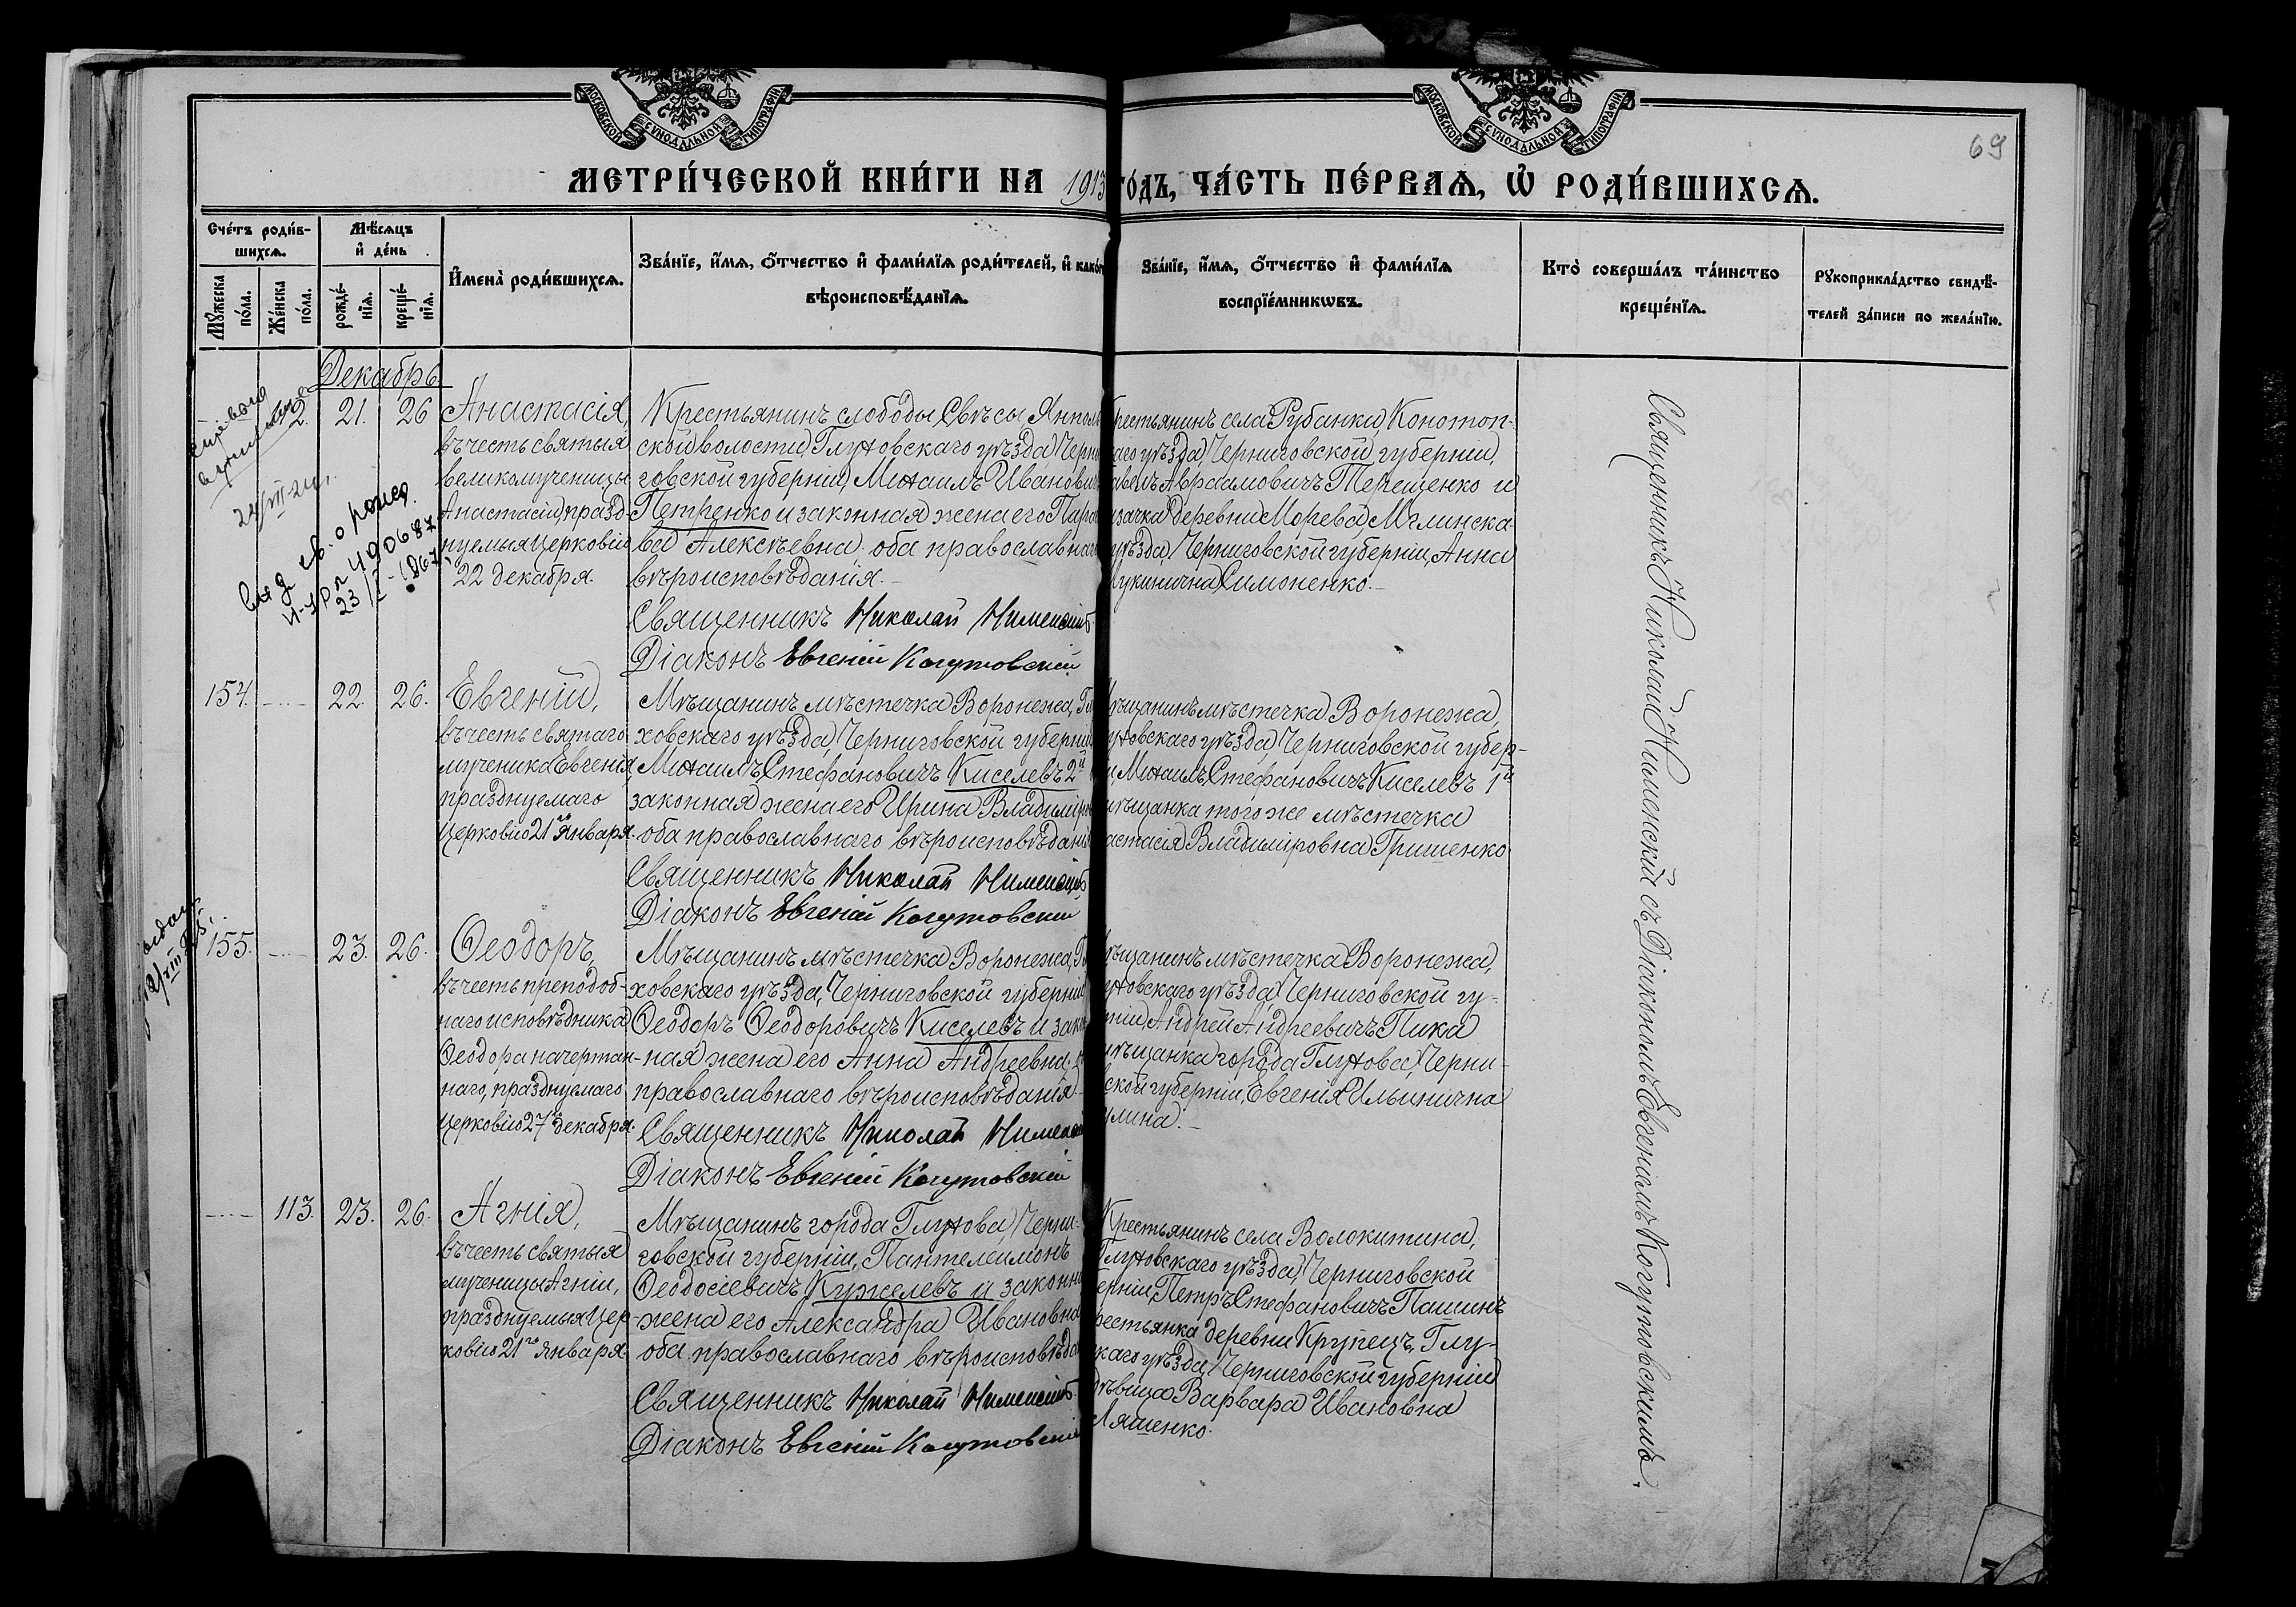 МОСКОВСКОЙ СѴНОДАЛЬНОЙ ТИПОГРАФІИ
МОСКОВСКОЙ СѴНОДАЛЬНОЙ ТИПОГРАФІИ
69
МЕТРИ́ЧЕСКОЙ КНИ́ГИ НА 1913
ГО́ДЪ, ЧА́СТЬ ПЕ́РВАѦ, Ѡ РОДИ́ВШИХСѦ.
Сче́тъ роди́в-
шихсѧ.
Мꙋ́жеска по́ла.
Же́нска по́ла.
Мѣ́сѧцъ
и де́нь
рожде́-
нїѧ.
креще́-
нїѧ.
Имена̀ роди́вшихсѧ.
Зва́нїе, и́мѧ, ѻ́тчество и фами́лїѧ роди́телей, и како́г
вѣроисповѣ́данїѧ.
Зва́нїе, и́мѧ, ѻ́тчество и фами́лїѧ
воспрїе́мникѡвъ.
Кто̀ соверша́лъ та́инство
креще́нїѧ.
Рꙋкоприкла́дство свидѣ́-
телей за́писи по жела́нїю.
Декабрь
2. 21. 26
Анастасія,
въ честь святыя
великомученицы
Анастасіи, празд-
нуемыя церковію
22 декабря.
Крестьянинъ слободы Свѣсы, Ямполь
ской волости, Глуховскаго уѣзда, Черни
говской губерніи, Михаилъ Иванович
Петренко и законная жена его Пара
ва Алексѣевна оба православнаго
вѣроисповѣданія.
Священникъ Николай Нименскій
Діаконъ Евгеній Когутовскій
рестьянинъ села Рубанки, Конотоп-
аго уѣзда, Черниговской губерніи,
авелъ Аврамовичъ Терещенко и
азачка деревни Морева, Мглинска-
уѣзда, Черниговской губерніи, Анна
Лукинична Симоненко.
24/VII-24 г.
выд св. о рожд.
23/I-1967
154. 22. 26.
Евгеній,
въ честь святаго
мученика Евгенія,
празднуемаго
церковію 21го января.
Мѣщанинъ мѣстечка Воронежа, Гл
ховскаго уѣзда, Черниговской губерніи
Михаилъ Стефановичъ Киселевъ 2й
законная жена его Ирина Владиміро
оба православнаго вѣроисповѣдані
Священникъ Николай Нименскій
Діаконъ Евгеній Когутовскій
ѣщанинъ мѣстечка Воронежа,
уховскаго уѣзда, Черниговской губер-
и, Михаилъ Стефановичъ Киселевъ 1й
мѣщанка того же мѣстечка
астасія Владиміровна Гришенко
155. 23. 26.
Ѳеодоръ,
въ честь преподоб-
наго исповѣдника
Ѳеодора начертан-
наго, празднуемаго
церковію 27го декабря.
Мѣщанинъ мѣстечка Воронежа, Гл
ховскаго уѣзда, Черниговской губерніи
Ѳеодоръ Ѳеодоровичъ Киселевъ и зако
ная жена его Анна Андреевна,
православнаго вѣроисповѣданія.
Священникъ Николай Нименскій
Діаконъ Евгеній Когутовскій
ѣщанинъ мѣстечка Воронежа,
уховскаго уѣзда, Черниговской гу-
рніи, Андрей Андреевичъ Пика
мѣщанка города Глухова, Черни-
ской губерніи, Евгенія Ильинична
улина.
113. 23. 26.
Агнія,
въ честь святыя
мученицы Агніи,
празднуемыя цер-
ковію 21го января.
Мѣщанинъ города Глухова, Черни-
говской губерніи, Пантелеимонъ
Ѳеодосіевичъ Кужелевъ и законна
жена его Александра Ивановна
оба православнаго вѣроисповѣда
Священникъ Николай Нименскій
Діаконъ Евгеній Когутовскій
Крестьянинъ села Волокитина,
Глуховскаго уѣзда, Черниговской
ерніи, Петръ Стефановичъ Пашинъ
рестьянка деревни Крупецъ, Глу-
скаго уѣзда, Черниговской губерніи
дѣвица Варвара Ивановна
Ляшенко.
Священникъ Николай Нименскій съ Діакономъ Евгеніемъ Когутовскимъ.